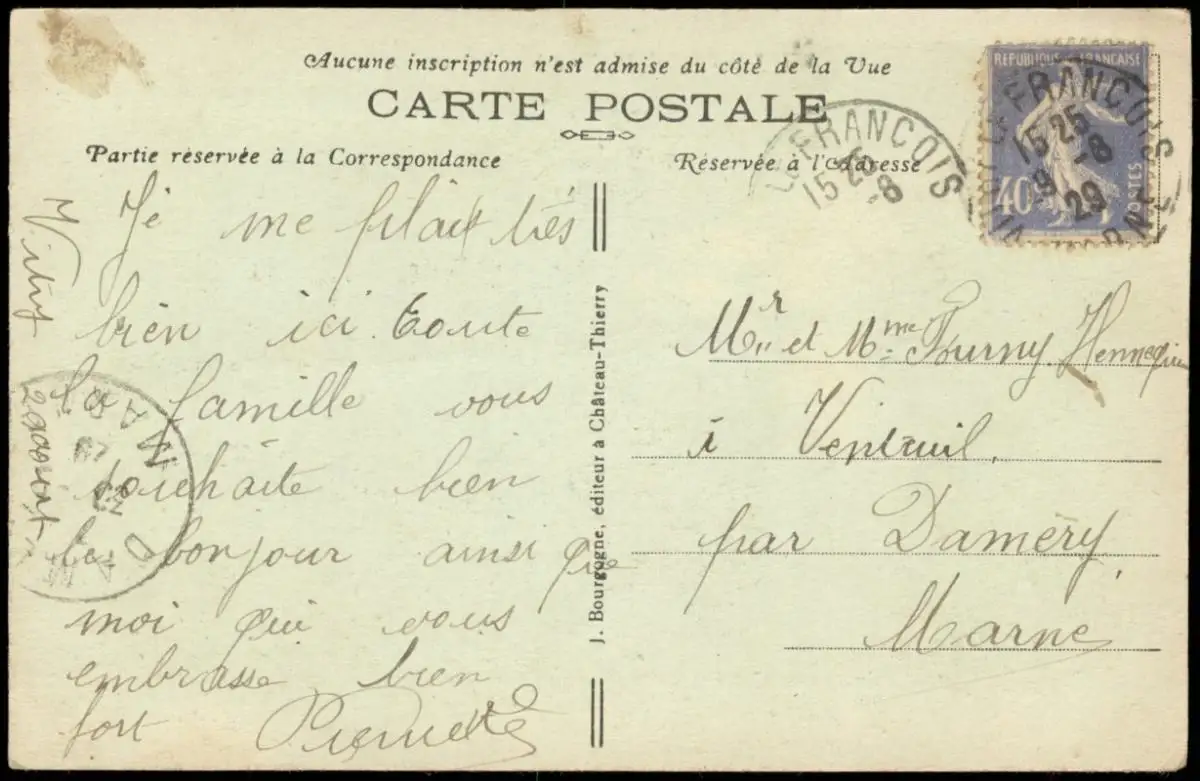 Aucune inscription n'est admise du côté de la Vue
CARTE POSTALE
Partie réservée à la Correspondance
Réservée à l'Adresse
Vitry
2 août
Je me plait très
bien ici. Toute
la famille vous
souhaite bien
le bonjour ainsi que
moi qui vous
embrasse bien
fort
J. Bourgogne, éditeur à Château-Thierry
LE FRANÇOIS
15 25
-8
RÉPUBLIQUE FRANÇAISE
40
POSTES
VITRY LE FRANÇOIS
15 25
-8
29
MARNE
Mr et Mme Hennequin
à Venteuil.
par Damery
Marne